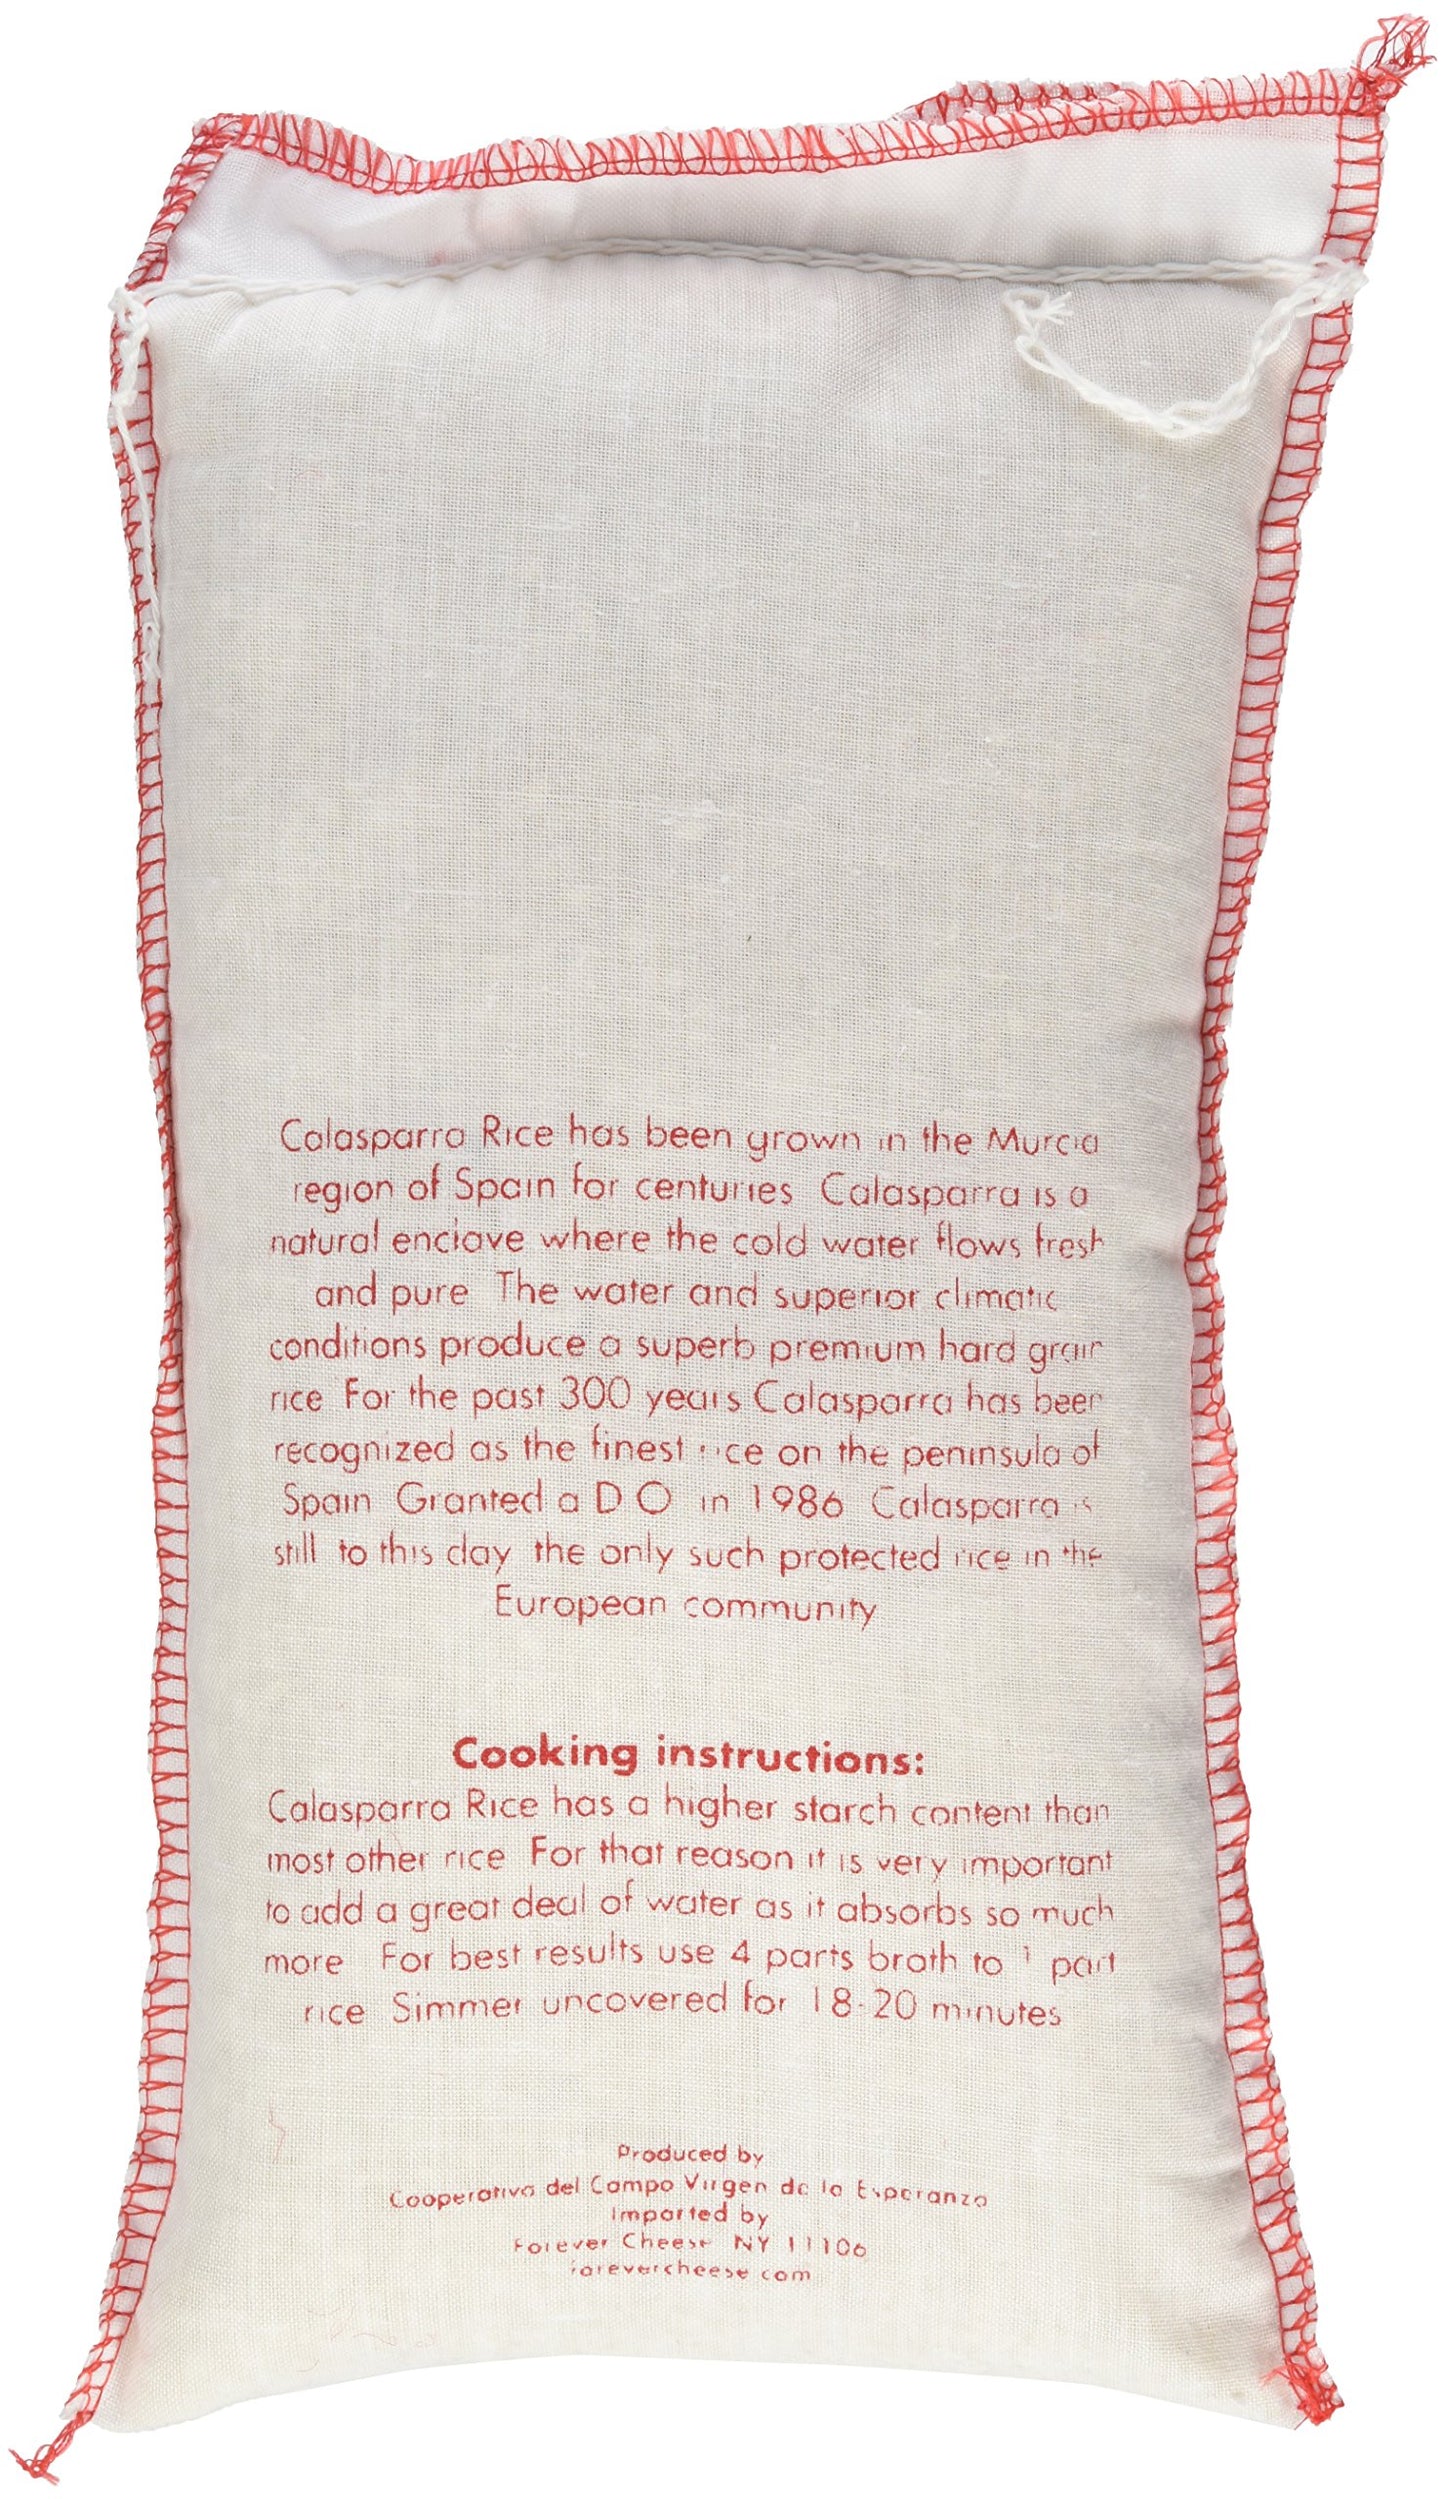 Calasparra Rice has been grown in the Murcia
region of Spain for centuries Calasparra is a
natural enclave where the cold water flows fresh
and pure The water and superior climatic
conditions produce a superb premium hard grain
rice For the past 300 years Calasparra has been
recognized as the finest rice on the peninsula of
Spain Granted a D O in 1986 Calasparra is
still to this day the only such protected rice in the
European community
Cooking instructions:
Calasparra Rice has a higher starch content than
most other rice For that reason it is very important
to add a great deal of water as it absorbs so much
more For best results use 4 parts broth to 1 part
rice Simmer uncovered for 18-20 minutes
Produced by
Cooperativa del Campo Virgen de la Esperanza
Imported by
Forever Cheese NY 11106
forevercheese com